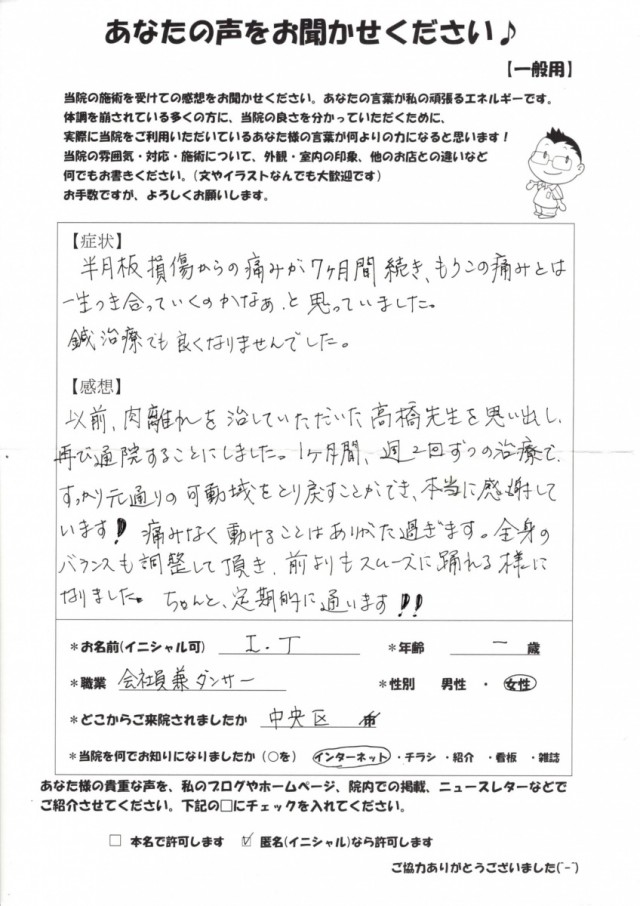 あなたの声をお聞かせください♪
【一般用】
当院の施術を受けての感想をお聞かせください。あなたの言葉が私の頑張るエネルギーです。
体調を崩されている多くの方に、当院の良さを分かっていただくために、
実際に当院をご利用いただいているあなた様の言葉が何よりの力になると思います！
当院の雰囲気・対応・施術について、外観・室内の印象、他のお店との違いなど
何でもお書きください。(文やイラストなんでも大歓迎です)
お手数ですが、よろしくお願いします。
【症状】
半月板損傷からの痛みが7ヶ月間続き、もうこの痛みとは
一生つき合っていくのかなぁ、と思っていました。
鍼治療でも良くなりませんでした。
【感想】
以前、肉離れを治していただいた高橋先生を思い出し、
再び通院することにしました。1ヶ月間、週2回ずつの治療で、
すっかり元通りの可動域をとり戻すことができ、本当に感謝して
います！痛みなく動けることはありがた過ぎます。全身の
バランスも調整して頂き、前よりもスムーズに踊れる様に
なりました。ちゃんと、定期的に通います!!
*お名前(イニシャル可) I.T *年齢 ー 歳
*職業 会社員兼ダンサー *性別 男性 ・ 女性
*どこからご来院されましたか 中央区
*当院を何でお知りになりましたか(○を) インターネット ・チラシ ・紹介 ・看板 ・雑誌
あなた様の貴重な声を、私のブログやホームページ、院内での掲載、ニュースレターなどで
ご紹介させてください。下記の□にチェックを入れてください。
□ 本名で許可します ☑ 匿名(イニシャル)なら許可します
ご協力ありがとうございました(^-^)